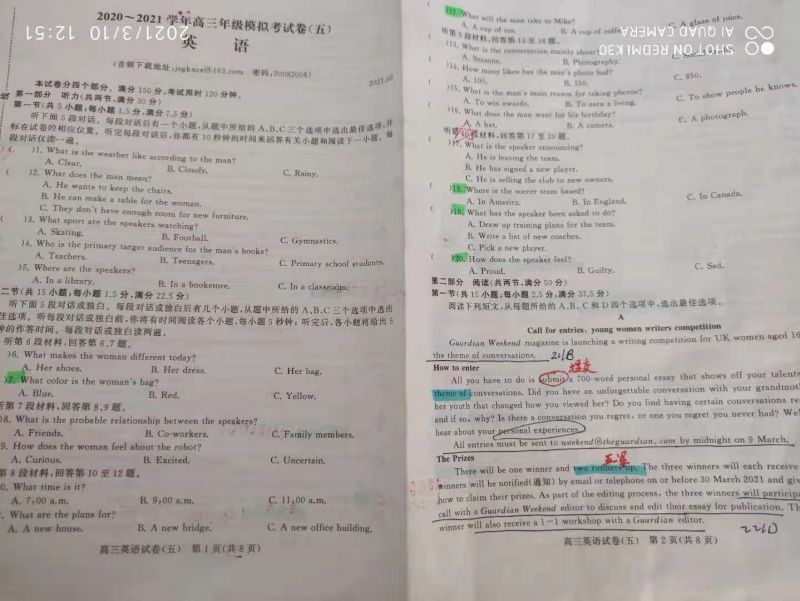 2021/3/10 12:51
2020～2021学年高三年级模拟考试卷(五)
英 语
(音频下载地址:jsgkxzx@163.com 密码:20082008)
2021.03
本试卷分四个部分。满分150分,考试用时120分钟。
第一部分 听力(共两节,满分30分)
第一节(共5小题;每小题1.5分,满分7.5分)
听下面5段对话。每段对话后有一个小题,从题中所给的A、B、C三个选项中选出最佳选项,并
标在试卷的相应位置。听完每段对话后,你都有10秒钟的时间来回答有关小题和阅读下一小题。每
段对话仅读一遍。
( )1. What is the weather like according to the man?
A. Clear. B. Cloudy. C. Rainy.
( )2. What does the man mean?
A. He wants to keep the chairs.
B. He can make a table for the woman.
C. They don't have enough room for new furniture.
( )3. What sport are the speakers watching?
A. Skating. B. Football. C. Gymnastics.
( )4. Who is the primary target audience for the man's books?
A. Teachers. B. Teenagers. C. Primary school students.
( )5. Where are the speakers?
A. In a library. B. In a bookstore. C. In a classroom.
二节(共15小题;每小题1.5分,满分22.5分)
听下面5段对话或独白。每段对话或独白后有几个小题,从题中所给的A、B、C三个选项中选出
佳选项。听每段对话或独白前,你将有时间阅读各个小题,每小题5秒钟;听完后,各小题将给出5
钟的作答时间。每段对话或独白读两遍。
听第6段材料,回答第6、7题。
)6. What makes the woman different today?
A. Her shoes. B. Her dress. C. Her bag.
)7. What color is the woman's bag?
A. Blue. B. Red. C. Yellow.
听第7段材料,回答第8、9题。
)8. What is the probable relationship between the speakers?
A. Friends. B. Co-workers. C. Family members.
9. How does the woman feel about the robot?
A. Curious. B. Excited. C. Uncertain.
第8段材料,回答第10至12题。
0. What time is it?
A. 7:00 a.m. B. 9:00 a.m. C. 11:00 a.m.
. What are the plans for?
A. A new house. B. A new bridge. C. A new office building.
高三英语试卷(五) 第1页(共8页)
SHOT ON REDMI K30
AI QUAD CAMERA
)12. What will the man take to Mike?
A. A cup of tea. B. A cup of coffee. C. A glass of juice.
听第9段材料,回答第13至16题。
)13. What is the conversation mainly about?
A. Seasons. B. Photography.
)14. How many likes has the man's photo had?
A. 100. B. 150. C. 850.
)15. What is the man's main reason for taking photos?
A. To win awards. B. To earn a living. C. To show people he knows.
)16. What does the man want for his birthday?
A. A hat. B. A camera. C. A photograph.
听第10段材料,回答第17至20题。
)17. What is the speaker announcing?
A. He is leaving the team.
B. He has signed a new player.
C. He is selling the club to new owners.
( )18. Where is the soccer team based?
A. In America. B. In England. C. In Canada.
( )19. What has the speaker been asked to do?
A. Draw up training plans for the team.
B. Write a list of new coaches.
C. Pick a new player.
( )20. How does the speaker feel?
A. Proud. B. Guilty. C. Sad.
第二部分 阅读(共两节,满分50分)
第一节(共15小题;每小题2.5分,满分37.5分)
阅读下列短文,从每题所给的A、B、C和D四个选项中,选出最佳选项。
A
Call for entries: young women writers competition
Guardian Weekend magazine is launching a writing competition for UK women aged 16
the theme of conversations. 21B
How to enter 提交
All you have to do is submit a 700-word personal essay that shows off your talents
theme of conversations. Did you have an unforgettable conversation with your grandmoth
her youth that changed how you viewed her? Do you find having certain conversations re
and if so, why? Is there a conversation you regret, or one you regret you never had? We'
hear about your personal experiences.
All entries must be sent to weekend@theguardian.com by midnight on 9 March.
The Prizes 亚军
There will be one winner and two runners-up. The three winners will each receive
winners will be notified(通知) by email or telephone on or before 30 March 2021 and give
how to claim their prizes. As part of the editing process, the three winners will participa
call with a Guardian Weekend editor to discuss and edit their essay for publication. Th
winner will also receive a 1-1 workshop with a Guardian editor.
22D
高三英语试卷(五) 第2页(共8页)